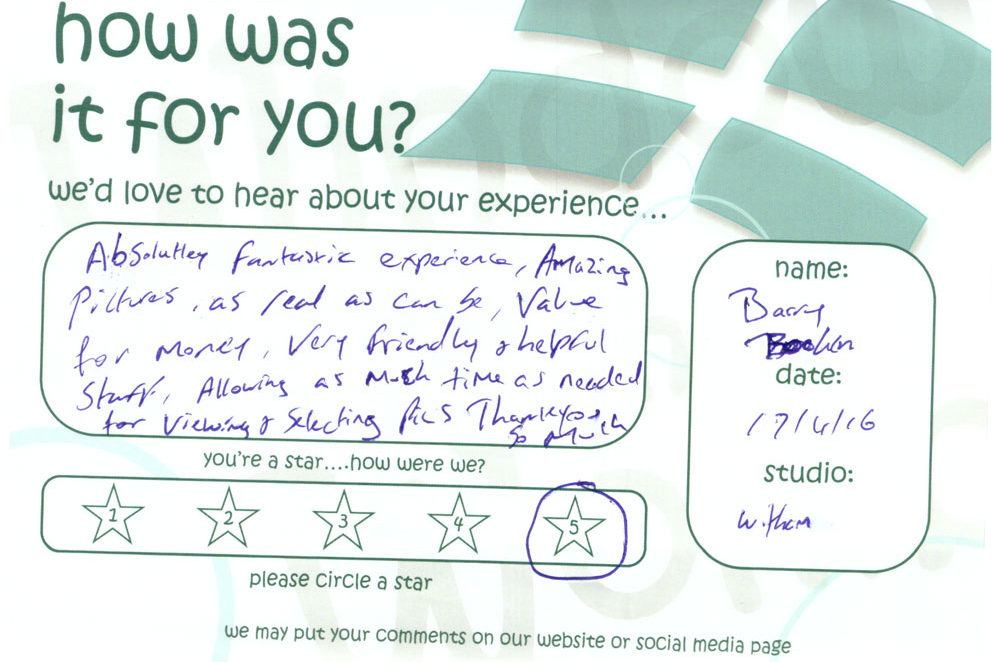 how was
it for you?
we'd love to hear about your experience...
Absolutley fantastic experience, Amazing
Pictures, as real as can be, Value
for Money, Very friendly & helpful
Staff, Allowing as Much time as needed
for Viewing & Selecting Pics Thankyou
So Much
you're a star....how were we?
1 2 3 4 5
please circle a star
name:
Barry
date:
17/4/16
studio:
Witham
we may put your comments on our website or social media page